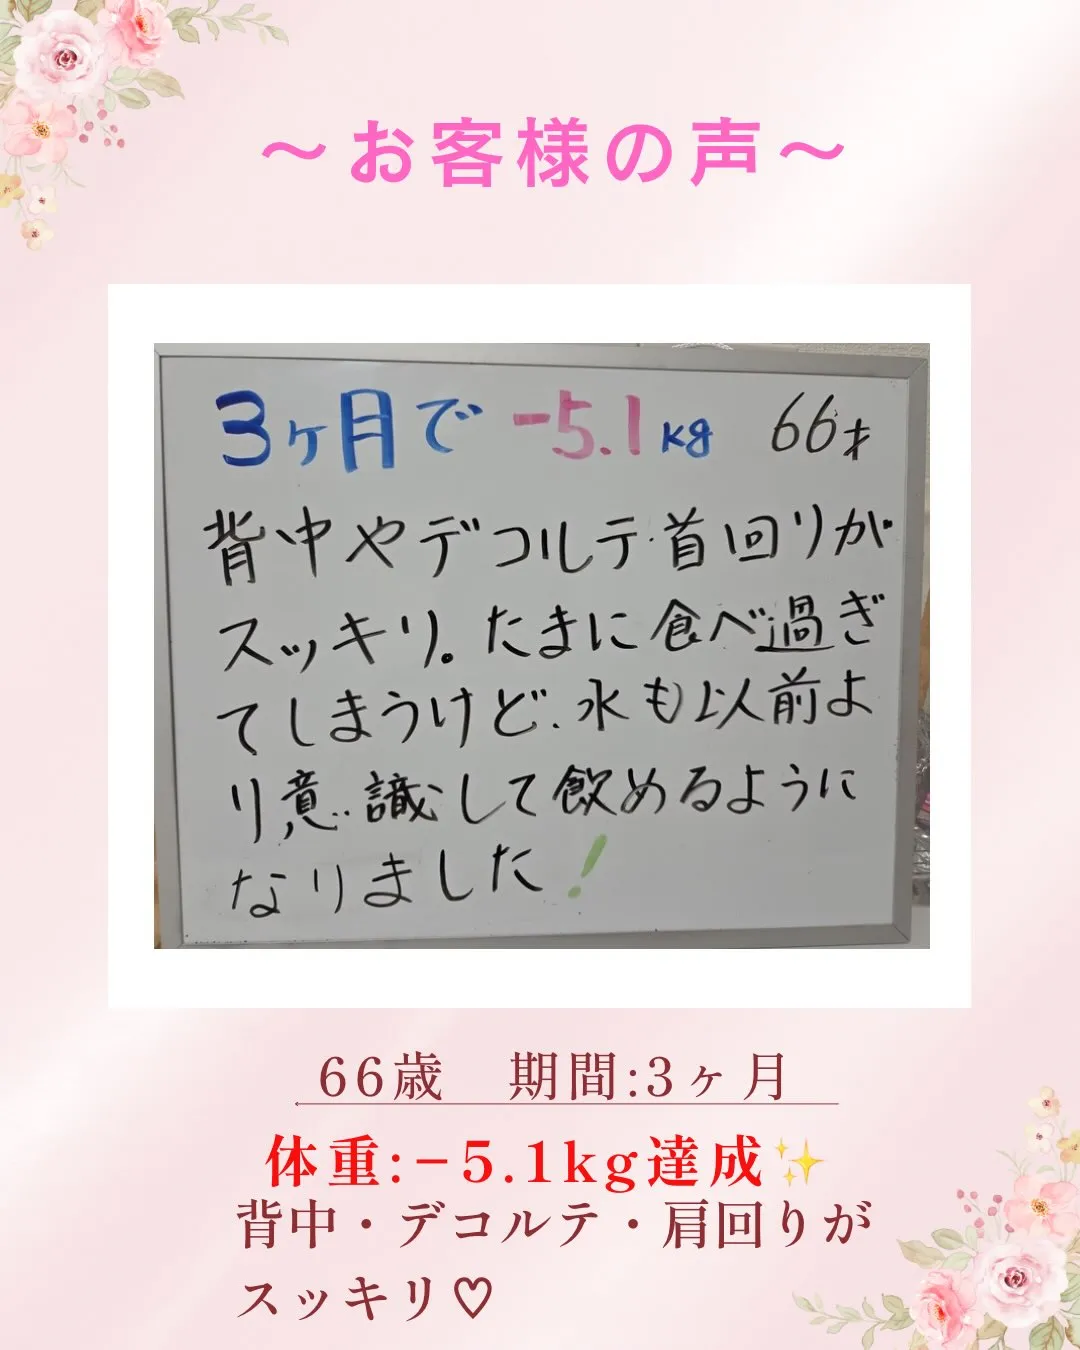 〜お客様の声〜
3ヶ月で -5.1kg 66才
背中やデコルテ・首回りが
スッキリ。たまに食べ過ぎ
てしまうけど、水も以前よ
り意識して飲めるように
なりました!
66歳　期間:3ヶ月
体重:−5.1kg達成✨
背中・デコルテ・肩回りが
スッキリ♡